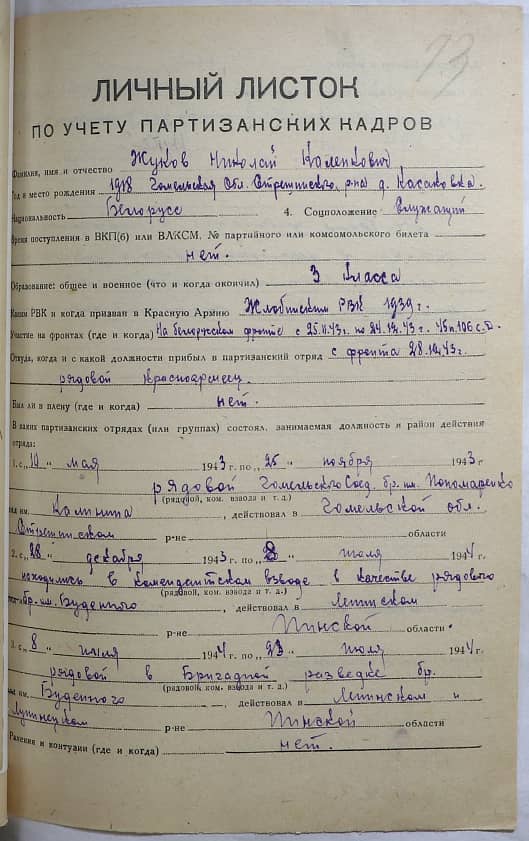 73
ЛИЧНЫЙ ЛИСТОК
ПО УЧЕТУ ПАРТИЗАНСКИХ КАДРОВ
Фамилия, имя и отчество Жуков Николай
Год и место рождения 1918 Гомельская Обл. Стрешинского р-на д. Касаковка.
Национальность Белорусс 4. Соцположение Служащий
Время поступления в ВКП(б) или ВЛКСМ. № партийного или комсомольского билета
нет.
Образование: общее и военное (что и когда окончил) 3 Класса
Каким РВК и когда призван в Красную Армию Жлобинским РВК 1939 г.
Участие на фронтах (где и когда) На белорусском фронте с 25.11.43 г. по 24.12.43 г.
Откуда, когда и с какой должности прибыл в партизанский отряд с фронта 28.12.43 г.
рядовой Красноармеец.
Был ли в плену (где и когда) нет.
В каких партизанских отрядах (или группах) состоял, занимаемая должность и район действия
отряда:
1. с „ " мая 1943 г. по „25 " ноября 1943 г
рядовой Гомельского Соед. бр. им. Пономаренко
(рядовой, ком. взвода и т. д.)
им. Калинина, действовал в Гомельской обл.
Стрешинском р-не области
2. с „28 " декабря 1943 г. по „ " июля 1944 г.
находились в комендантском взводе в качестве рядового
(рядовой, ком. взвода и т. д.)
бр. им. Буденного, действовал в Ленинском
р-не Пинской области.
3. с „8 " июля 1944 г. по „23 " июля 1944 г.
рядовой в Бригадной разведке бр.
(рядовой, ком. взвода и т. д.)
им. Буденного, действовал в Ленинском и
Лунинецком р-не Пинской области
Ранения и контузии (где и когда) нет.